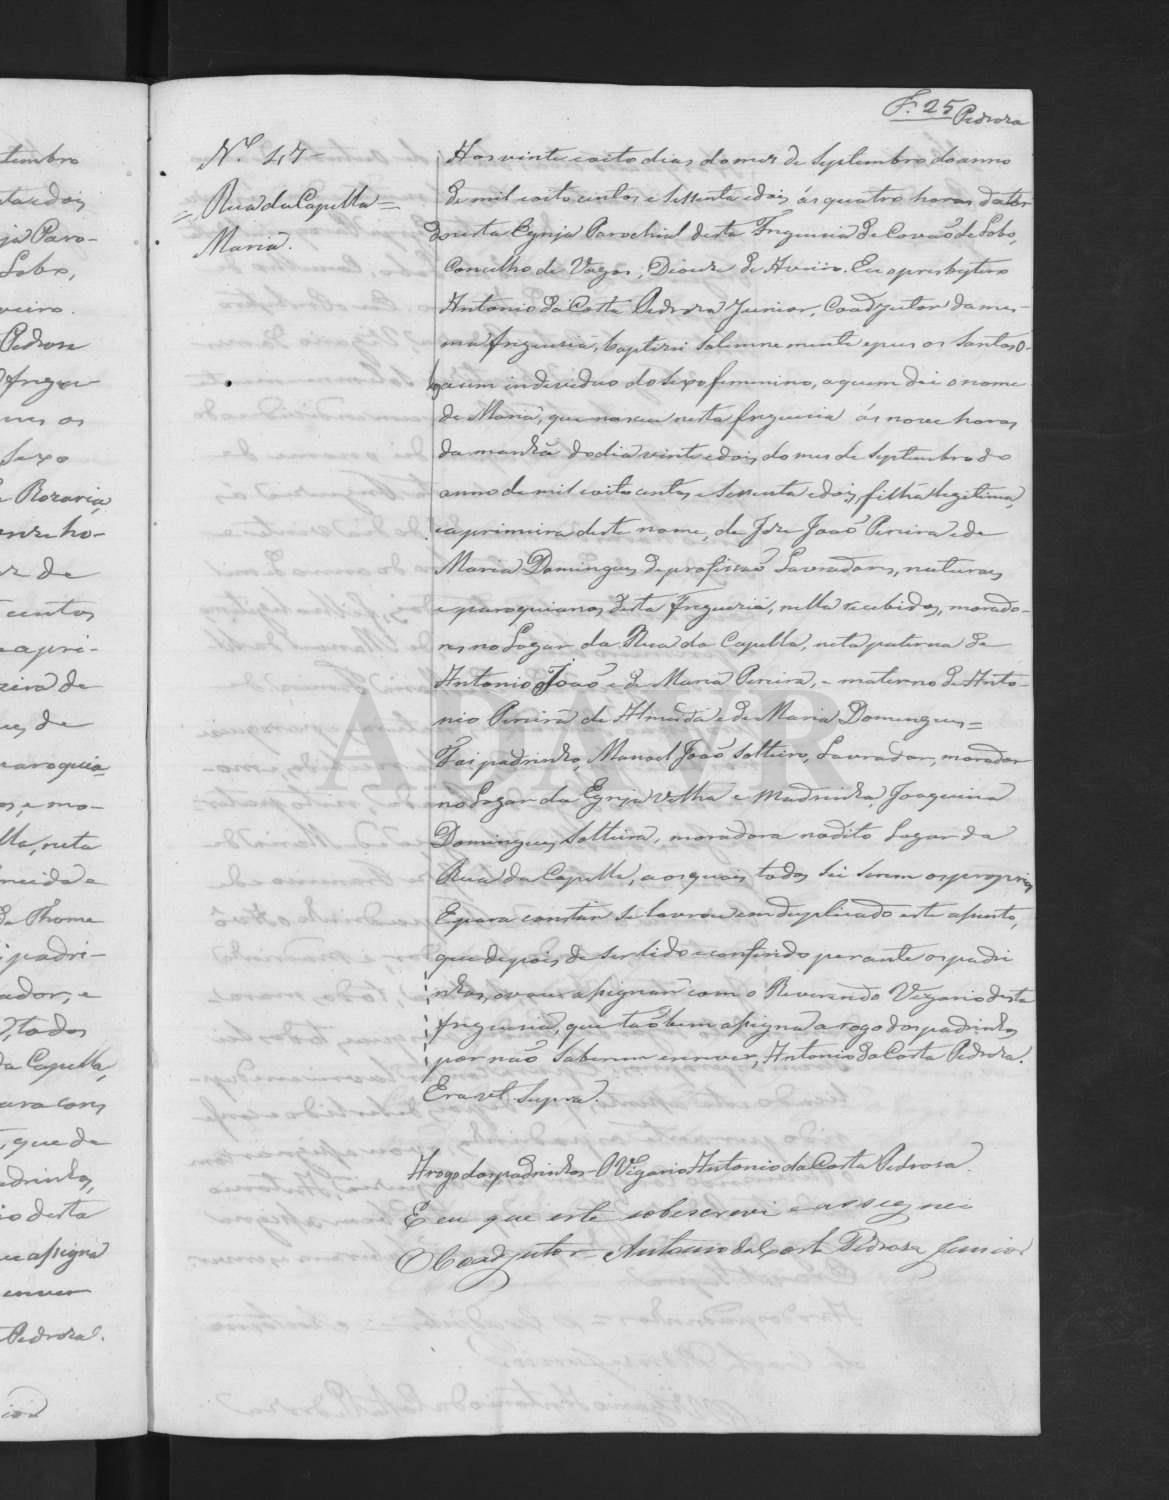 F. 25 Pedroza
N.º 47 -
= Rua da Capella =
Maria.
Aos vinte e oito dias do mez de Septembro do anno
de mil e oito centos e sessenta e dois ás quatro horas da tar
de nesta Egreja Parochial desta Freguesia de Covão de Lobo,
Concelho de Vagos, Dioceze de Aveiro. Eu o presbytero
Antonio da Costa Pedroza Junior, Coadjutor da mes-
ma freguesia, baptizei solemnemente e puz os Santos O-
leos a um individuo do sexo femenino, a quem dei o nome
de Maria, que nasceu nesta freguesia ás nove horas
da manhã do dia vinte e dois do mes de Septembro do
anno de mil e oito centos e sessenta e dois, filha legitima,
e a primeira deste nome, de Joze João Pereira e de
Maria Domingues de profissão Lavradores, naturaes
e paroquianos desta Freguesia, nella recebidos, morado-
res no Lugar da Rua da Capella, neta paterna de
Antonio João e de Maria Pereira, e materna de Anto-
nio Pereira de Almeida e de Maria Domingues =
Foi padrinho, Manoel João Solteiro, Lavrador, morador
no Lugar da Egreja Velha e Madrinha, Joaquina
Domingues, Solteira, moradora no dito Lugar da
Rua da Capella, aos quais todos sei serem os proprios
E para constar se lavrou em duplicado este assento,
que depois de ser lido e conferido perante os padri
nhos, o vou assignar com o Reverendo Vigario desta
freguesia, que tãobem assigna a rogo dos padrinhos
por não saberem escrever, Antonio da Costa Pedroza.
Era ut Supra.
A rogo dos padrinhos - O Vigario Antonio da Costa Pedrosa.
E eu que este sobescrevi e assignei
O Coadjutor = Antonio da Costa Pedroza Junior
ADAVR
tembro
ta e dois
ja Paro-
Lobo,
veiro.
Pedroza
fregue
sexo
Rozario,
ho-
de
centos
a pri-
reira de
de
paroquia
e mo-
lla, neta
meida e
de Thome
padri-
ador, e
todos
da Capella,
para cons
que de
adrinhos,
io desta
assigna
Pedroza.